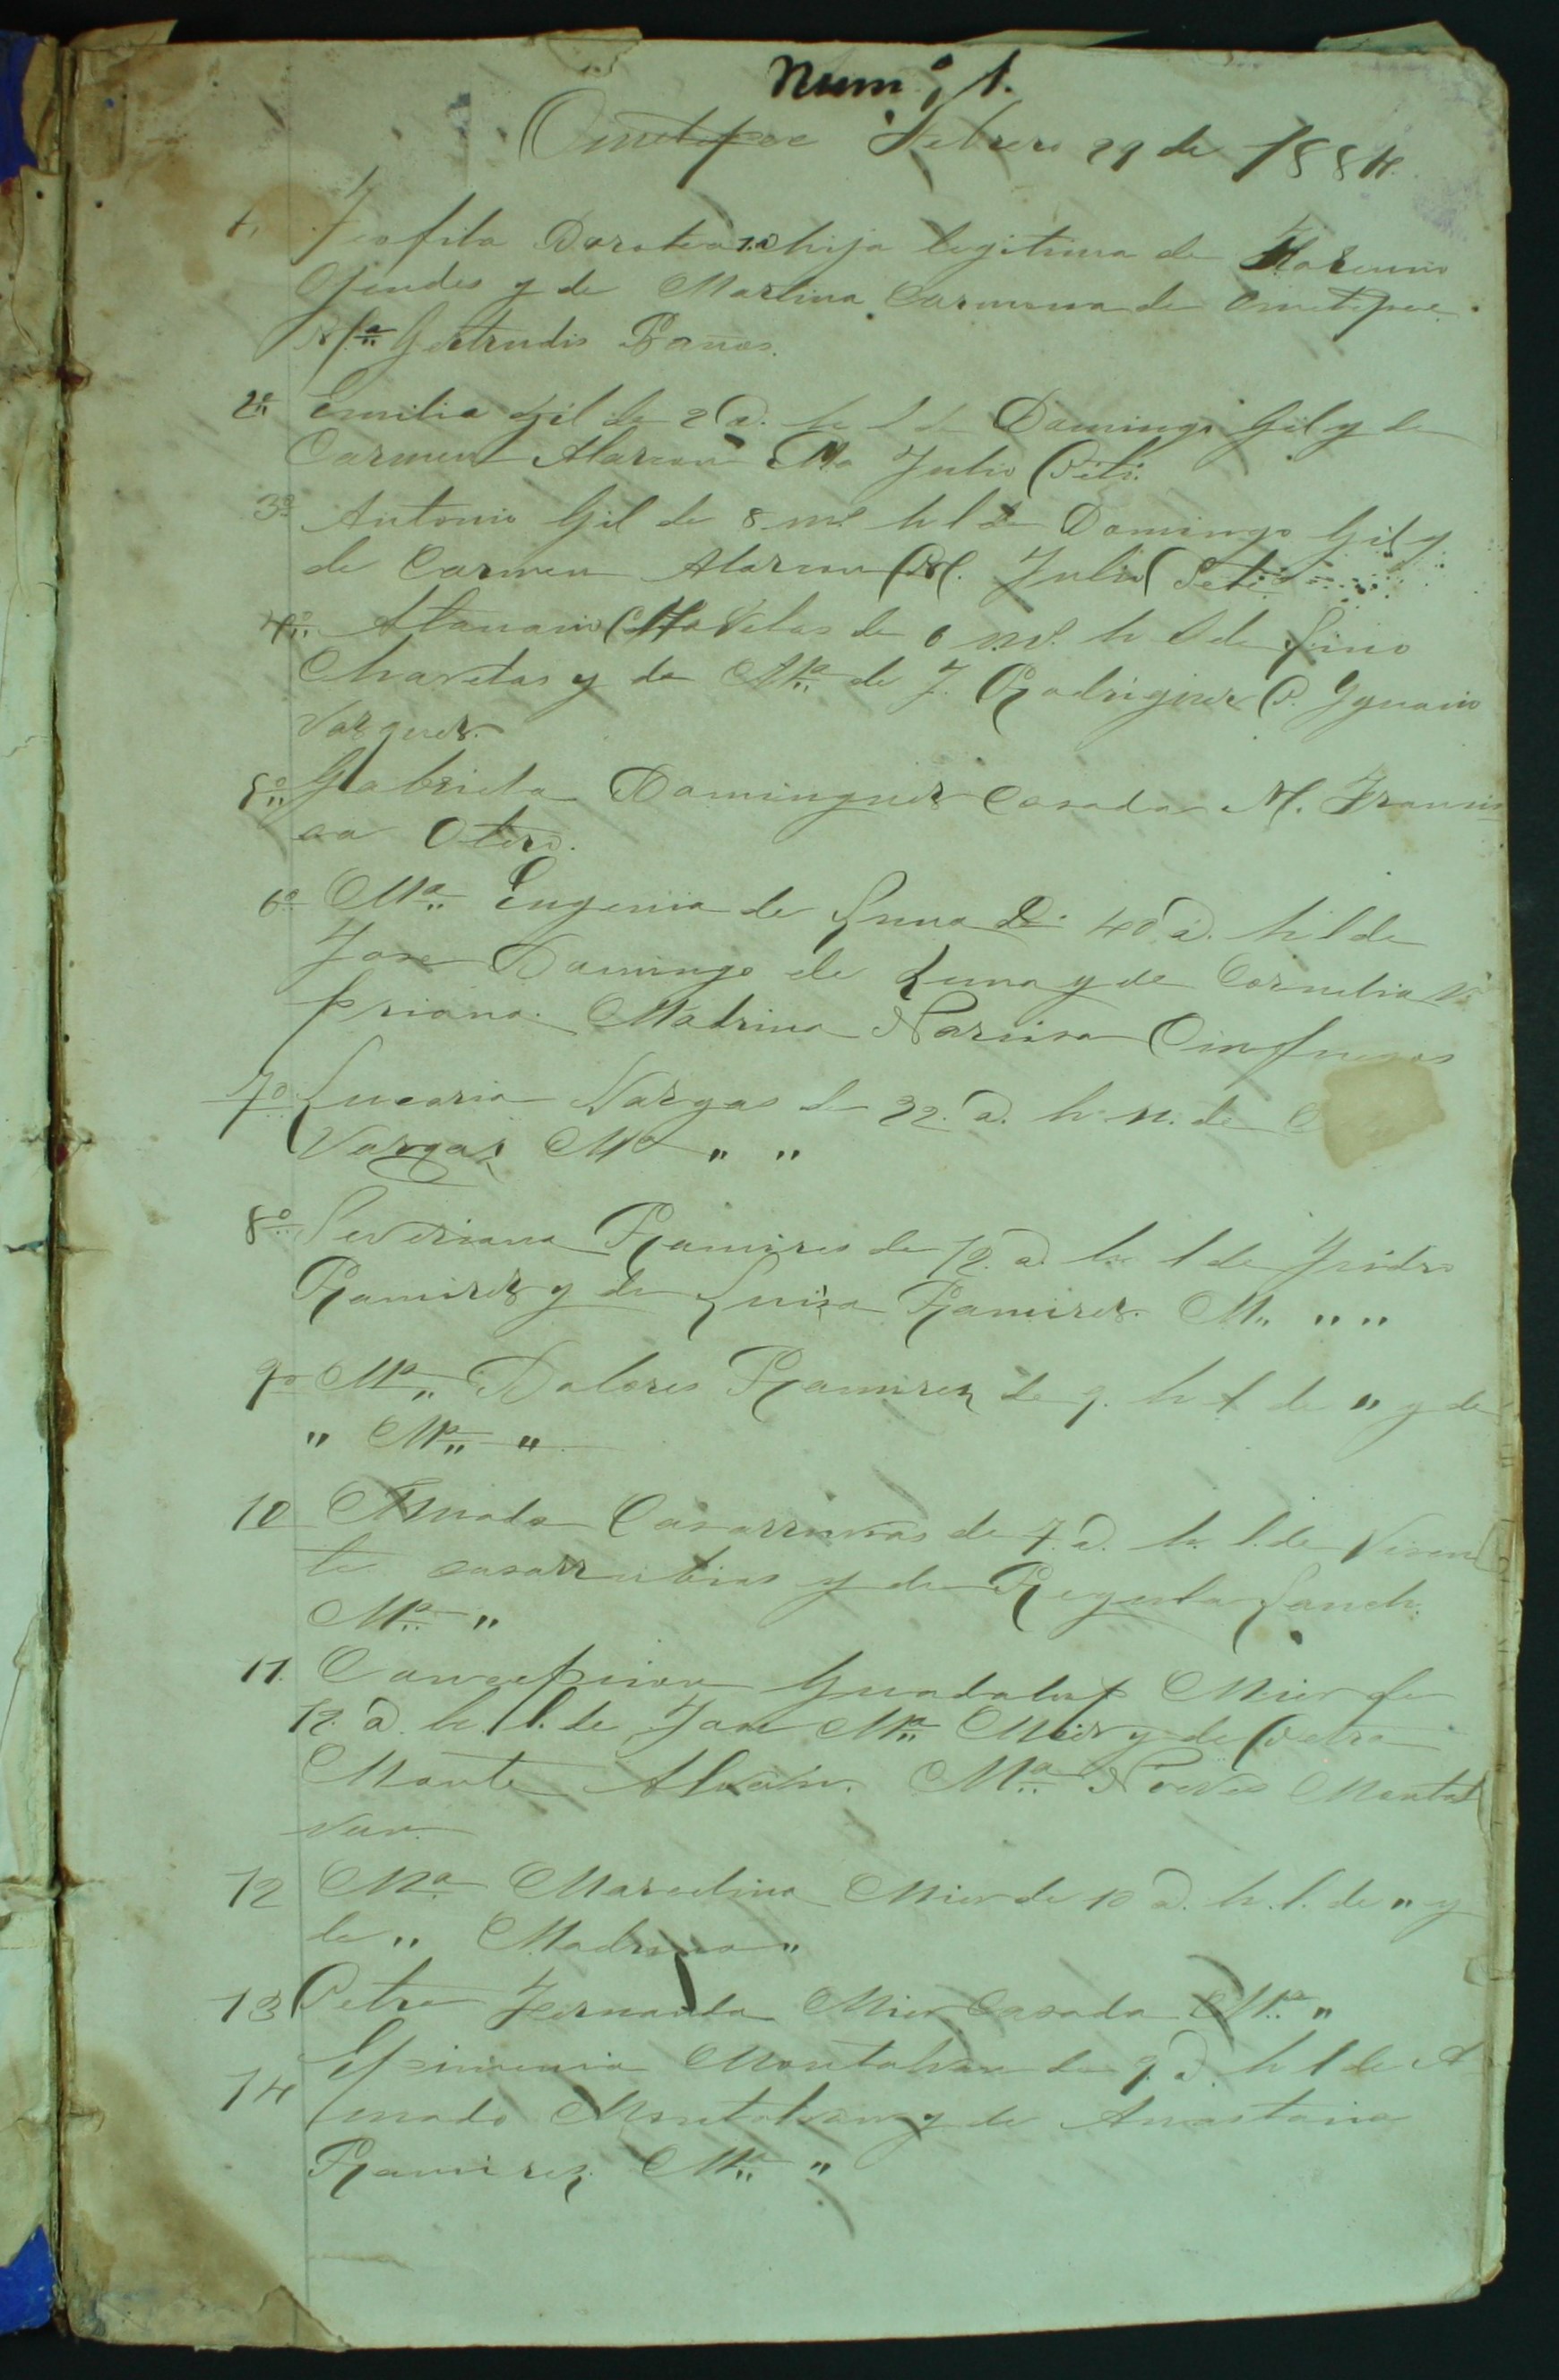 Num.º 1.
Ometepec Febrero 29 de 1884.
1. Teofila Dorotea 1.a hija legitima de
y de Martina Carmona de Ometepec.
M.a Gertrudis Baños.
2º Emilia Gil de 2 a. h l d Domingo Gil y de
Carmen Alarcon Ma Julio Peti.
3º Antonio Gil de 8 ms h l de Domingo Gil y
de Carmen Alarcon M. Julio Peti
4º de 6 ms. h l de Lino
y de Ma. de J. Rodriguez P. Ygnacio
Vazquez.
5º Gabriela Dominguez Casada M. Francis
ca Otero.
6º Ma. Eugenia de Luna de 40 a. h l de
Jose Domingo de Luna y de Cornelia
priano. Madrina Narcisa Cinfuegos
7º Vargas de 22. a. h. n. de
Vargas Ma " "
8º Severiana Ramires de 12. a. h. l de Ysidro
Ramirez y de Luisa Ramirez. M.. " "
9º Ma.. Dolores Ramirez de 9. h l de " y de
" Ma.. "
10 Amada Casarruvias de 7. a. h. l. de Vicen
te casarrubias y de Regula Sanch.
Ma.. "
11. Concepcion Guadalupe Mier de
12. a. h. l. de Jose Ma.. Mier y de Petra
Monte Alvan. Ma.. Nieves Montal
van.
12 Ma. Marcelina Mier de 10 a. h. l. de " y
de " Madrina "
13 Petra Fernanda Mier Casada Ma.. "
14 Epimenia Montalvan de 9. a. h l de A
mado Montalvan y de Anastacia
Ramirez. Ma.. "